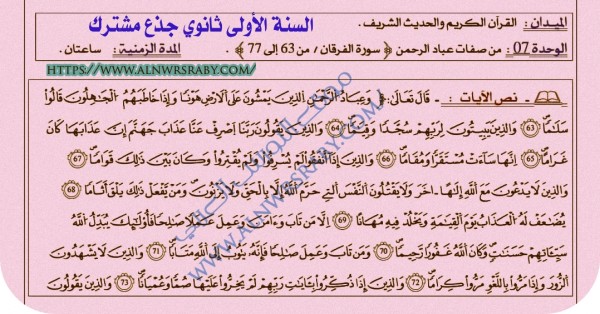 السنة الأولى ثانوي جذع مشترك
الميدان : القرآن الكريم والحديث الشريف .
الوحدة 07 : من صفات عباد الرحمن ﴿ سورة الفرقان / من 63 إلى 77 ﴾ . المدة الزمنية : ساعتان .
HTTPS://WWW.ALNWRSRABY.COM/
نص الآيات : - قال تعالى : ﴿ وَعِبَادُ الرَّحْمَٰنِ الذِينَ يَمْشُونَ عَلَى الْأَرْضِ هَوْنًا وَإِذَا خَاطَبَهُمُ الْجَٰهِلُونَ قَالُوا
سَلَٰمًا 63 وَالذِينَ يَبِيتُونَ لِرَبِّهِمْ سُجَّدًا وَقِيَٰمًا 64 وَالذِينَ يَقُولُونَ رَبَّنَا اَصْرِفْ عَنَّا عَذَابَ جَهَنَّمَ إِنَّ عَذَابَهَا كَانَ
غَرَامًا 65 اِنَّهَا سَآءَتْ مُسْتَقَرًّا وَمُقَامًا 66 وَالذِينَ إِذَآ أَنفَقُوا لَمْ يُسْرِفُوا وَلَمْ يُقْتِرُوا وَكَانَ بَيْنَ ذَٰلِكَ قَوَامًا 67
وَالذِينَ لَا يَدْعُونَ مَعَ اللَّهِ إِلَٰهًا اخَرَ وَلَا يَقْتُلُونَ النَّفْسَ التِي حَرَّمَ اللَّهُ إِلَّا بِالْحَقِّ وَلَا يَزْنُونَ وَمَنْ يَفْعَلْ ذَٰلِكَ يَلْقَ أَثَامًا 68
يُضَٰعَفْ لَهُ الْعَذَابُ يَوْمَ الْقِيَٰمَةِ وَيَخْلُدْ فِيهِ مُهَانًا 69 اِلَّا مَن تَابَ وَءَامَنَ وَعَمِلَ عَمَلًا صَٰلِحًا فَأُوْلَٰئِكَ يُبَدِّلُ اللَّهُ
سَيِّئَاتِهِمْ حَسَنَٰتٍ وَكَانَ اللَّهُ غَفُورًا رَّحِيمًا 70 وَمَن تَابَ وَعَمِلَ صَٰلِحًا فَإِنَّهُ يَتُوبُ إِلَى اللَّهِ مَتَابًا 71 وَالذِينَ لَا يَشْهَدُونَ
الزُّورَ وَإِذَا مَرُّوا بِاللَّغْوِ مَرُّوا كِرَامًا 72 وَالذِينَ إِذَا ذُكِّرُوا بِـَٔايَٰتِ رَبِّهِمْ لَمْ يَخِرُّوا عَلَيْهَا صُمًّا وَعُمْيَانًا 73 وَالذِينَ يَقُولُونَ
WWW.ALNWRSRABY.COM